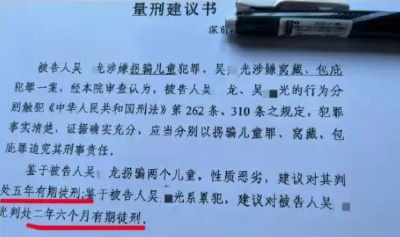 量刑建议书
深前
被告人吴 龙涉嫌拐骗儿童犯罪、吴 光涉嫌窝藏、包庇
犯罪一案,经本院审查认为,被告人吴 龙、吴 光的行为分
别触犯《中华人民共和国刑法》第 262 条、310 条之规定,犯罪
事实清楚,证据确实充分,应当分别以拐骗儿童罪、窝藏、包
庇罪追究其刑事责任。
鉴于被告人吴 龙拐骗两个儿童,性质恶劣,建议对其判
处五年有期徒刑;鉴于被告人吴 光系累犯,建议对被告人吴
光判处二年六个月有期徒刑.